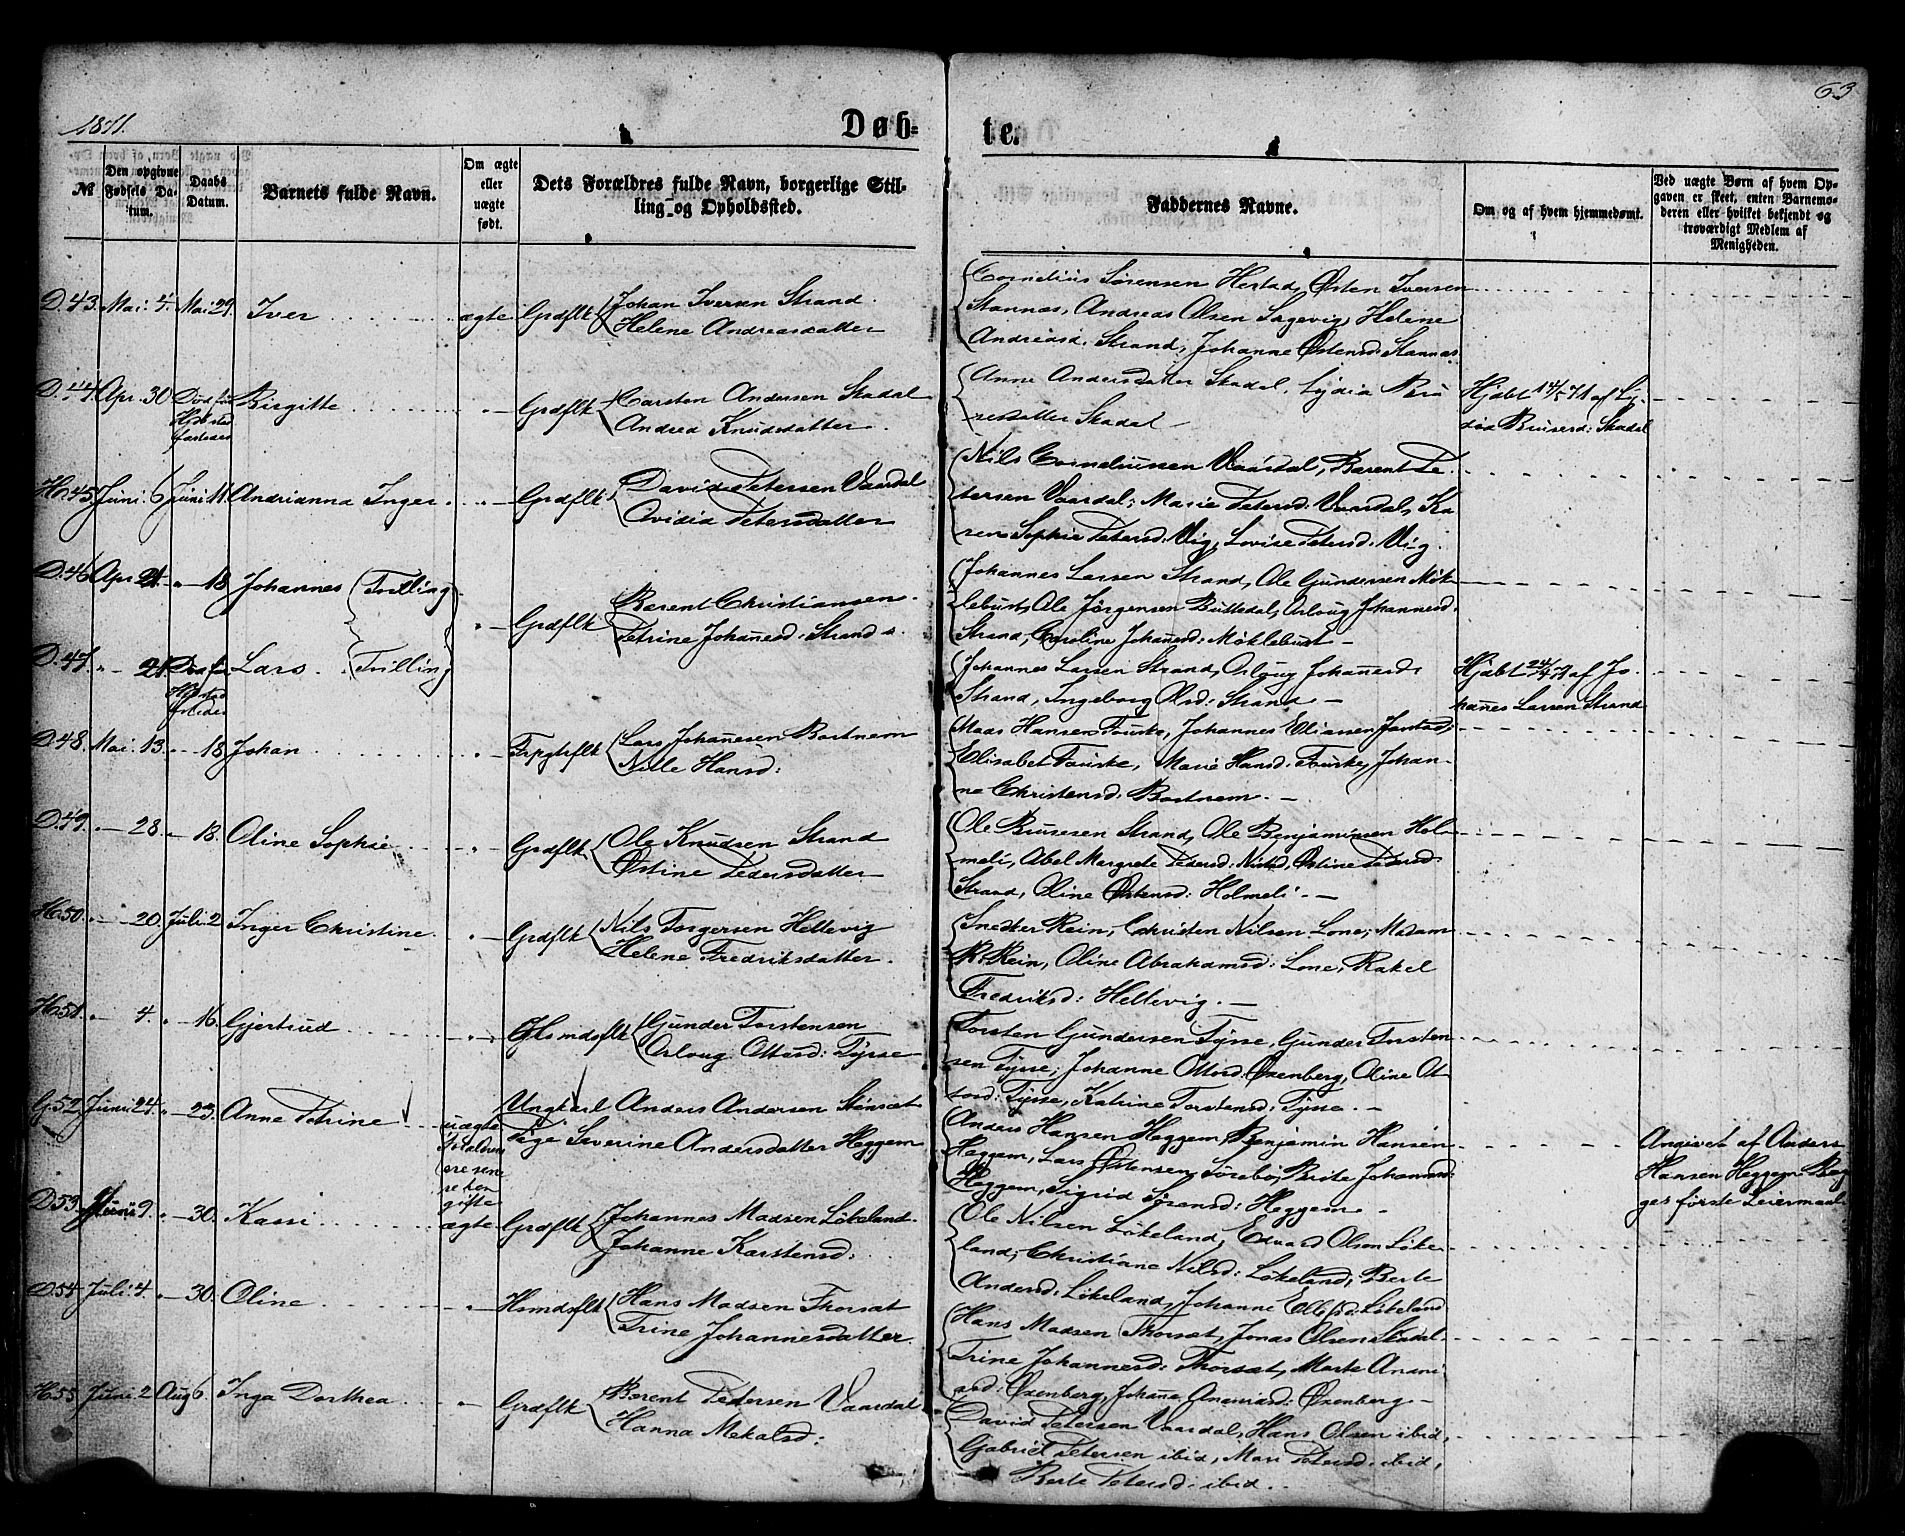 1871.
Døb-
te.
63
№
Den opgivne Fødsels Datum.
Daabs Datum.
Barnets fulde Navn.
Om ægte eller uægte født.
Dets Forældres fulde Navn, borgerlige Stilling og Opholdssted.
Faddernes Navne.
Om og af hvem hjemmedøbt.
Ved uægte Børn af hvem Opgaven er skeet, enten Barnemoderen eller hvilket bekjendt og troværdigt Medlem af Menigheden.
D.43. Mai: 4. Mai 29. Iver ægte Grdflk Johan Iversen Strand.
Helene Andreasdatter
Cornelius Sørensen Hestad, Østen Iversen
Stannas, Andreas Olsen Sagevig, Helene
Andreasd: Strand, Johanne Østensd: Stannas
D.44. Apr. 30 Birgitte " Grdflk Carsten Andersen Skadal
Andrea Knudsdatter
Anne Andersdatter Skadal, Lydia
Skadal
Hjdbt 14/5 71 af Ly-
dia Brusersd: Skadal
H.45. Juni. 6 Juni 11. Andrianna Inger " Grdflk David Petersen Vaardal
Ovidia Petersdatter
Nils Corneliussen Vaardal, Berent Pe-
tersen Vaardal, Marie Petersd: Vaardal, Ka-
ren Sophie Petersd: Vig, Lovise Petersd: Vig.
D.46 Apr 21. " 18 Johannes (Tvilling)
" Grdflk Berent Christiansen
Petrine Johanesd: Strand
Johannes Larsen Strand, Ole Gundersen Møk-
lebust, Ole Jørgensen Buttedal, Orloug Johannesd.
Strand, Caroline Johanesd: Møklebust
D.47. " 21. Lars. (Tvilling)
Johannes Larsen Strand, Orloug Johanesd:
Strand, Ingeborg Olsd: Strand
Hjdbt 24/4 71 af Jo-
hanes Larsen Strand
D.48. Mai. 13. " 18 Johan " Lars Johanesen Bortnem
Nille Hansd:
Mads Hansen Fauske, Johannes Eliassen
Elisabet Fauske, Marie Hansd: Fauske, Johan-
ne Christensd: Bortnem.
D.49. " 28. " 18. Oline Sophie " Grdflk Ole Knudsen Strand
Østine Pedersdatter
Ole Brusesen Strand, Ole Benjaminsen Hol-
meli, Abel Margrete Pedersd: Østine Pedersd
Strand, Oline Østensd: Holmeli.
H.50. " 20. Juli 2. Inger Christine. " Grdflk Nils Torgersen Hellevig
Helene Fredriksdatter.
Snedker Rein, Christen Nilsen Lone, Madam
R. Rein, Oline Abrahamsd: Lone, Rakel
Fredriksd: Hellevig.
H.51. " 4. " 16. Gjertrud " Gunder Torstensen
Orloug Ottosd: Tysse
Torsten Gundersen Tysse, Gunder Torsten-
sen Tysse, Johanne Ottosd: Oxenberg, Oline Ot-
tosd: Tysse, Katrine Torstensd: Tysse.
G.52. Juni 24. " 23. Anne Petrine uægte Ungkarl Anders Andersen Stensæt
Pige Severine Andersdatter Heggem
Forældrene ere senere hen gifte
Anders Hansen Heggem, Benjamin Hansen
Heggem, Lars Østensen Sørebø, Brite Johannesd:
Heggem, Sigrid Sørensd: Heggem
Angivet af Anders
Hansen Heggem. Beg-
ges første Leiermaal
D.53. 9. " 30. Kassi ægte Grdflk Johannes Madsen Løkeland.
Johanne Karstensd:
Ole Nilsen Løkeland, Edvard Olsen Løke-
land, Christiane Nilsd: Løkeland, Berte
Andersd: Løkeland, Johanne Ellefsd: Løkeland
D.54. Juli. 4. " 30. Oline " Hsmdsflk Hans Madsen Thorsæt
Trine Johannesdatter.
Hans Madsen Thorsæt, Jonas Olsen Skadal
Trine Johannesd: Thorsæt, Marte Anani-
asd: Oxenberg, Johane Ananiasd: Oxenberg
H.55. Juni 2. Aug 6. Inga Dorthea " Grdflk Berent Pedersen Vaardal
Hanna Mekalsd:
David Petersen Vaardal, Hans Olsen ibid,
Gabriel Petersen ibid, Mari Petersd: ibid,
Berte Petersd: ibid.